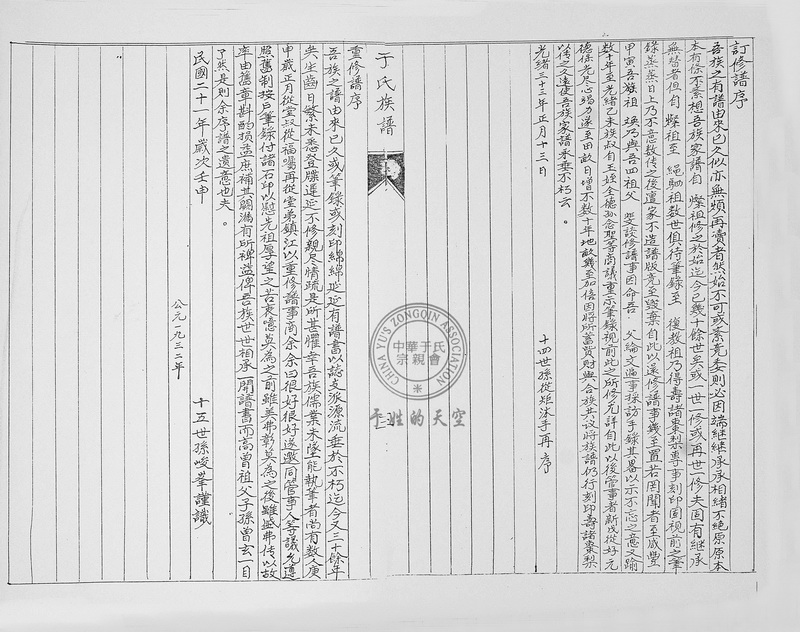 訂修譜序
吾族之有譜由來已久似亦無煩再瀆者然始不可或紊竟委則必因端継継承承相緒不絶原原本
本有條不紊想吾族家譜自 燦祖修之於始迄今已幾十餘世矣或一世一修或再世一修夫固有継承
無替者但自 燦祖至 繩駉祖数世俱待筆錄至 後教祖乃得壽諸棗梨專事刻印固視前之筆
錄蒸蒸日上乃不意数传之後遭家不造譜版竟至毀棄自此以還修譜事幾至置若罔聞者至咸豐
甲寅吾族祖 煥乃與吾四祖父 斐談修譜事因命吾 父綸文遍事採訪手錄其畧以示不忘之意又踰
数十年至光緒乙未族叔自玉姪全德孫念聖等商議重示筆錄視前此之所修尤詳自此以後管事者新戌從好元
德係光尽心竭力遂至田畝日增不数十年地畝幾至加倍因將所蓄貲財與合族共议將族譜仍行刻印壽諸棗梨
以传之久遠使吾族家譜永垂不朽云。
光緒三十三年正月十三日
十四世孫從矩沐手再序
于氏族譜
重修譜序
吾族之譜由來已久或筆錄或刻印綿綿延延有譜書以誌支派源流垂於不朽迄今又三十餘年
矣生齒日繁未悉登牒遲延不修親尽情疏是所甚懼幸吾族儒業未墜能執筆者尚有数人庚
申歲正月從堂叔從福囑再從堂弟鎮江以重修譜事商余余曰很好很好遂邀同管事人等議允遵
照舊制按户筆錄付諸石印以慰先祖厚望之苦衷噫莫為之前雖美弗彰莫為之後雖盛弗传以故
率由舊章斟酌損益庶補其闕漏有所裨益俾吾族世世相承一開譜書而高曾祖父子孫曾玄一目
了然是則余序譜之遺意也夫。
民國二十一年歲次壬申
公元一九三二年
十五世孫峻峯謹識
CHINA YU'S ZONGQIN ASSOCIATION
中華于氏
宗親會
于姓的天空